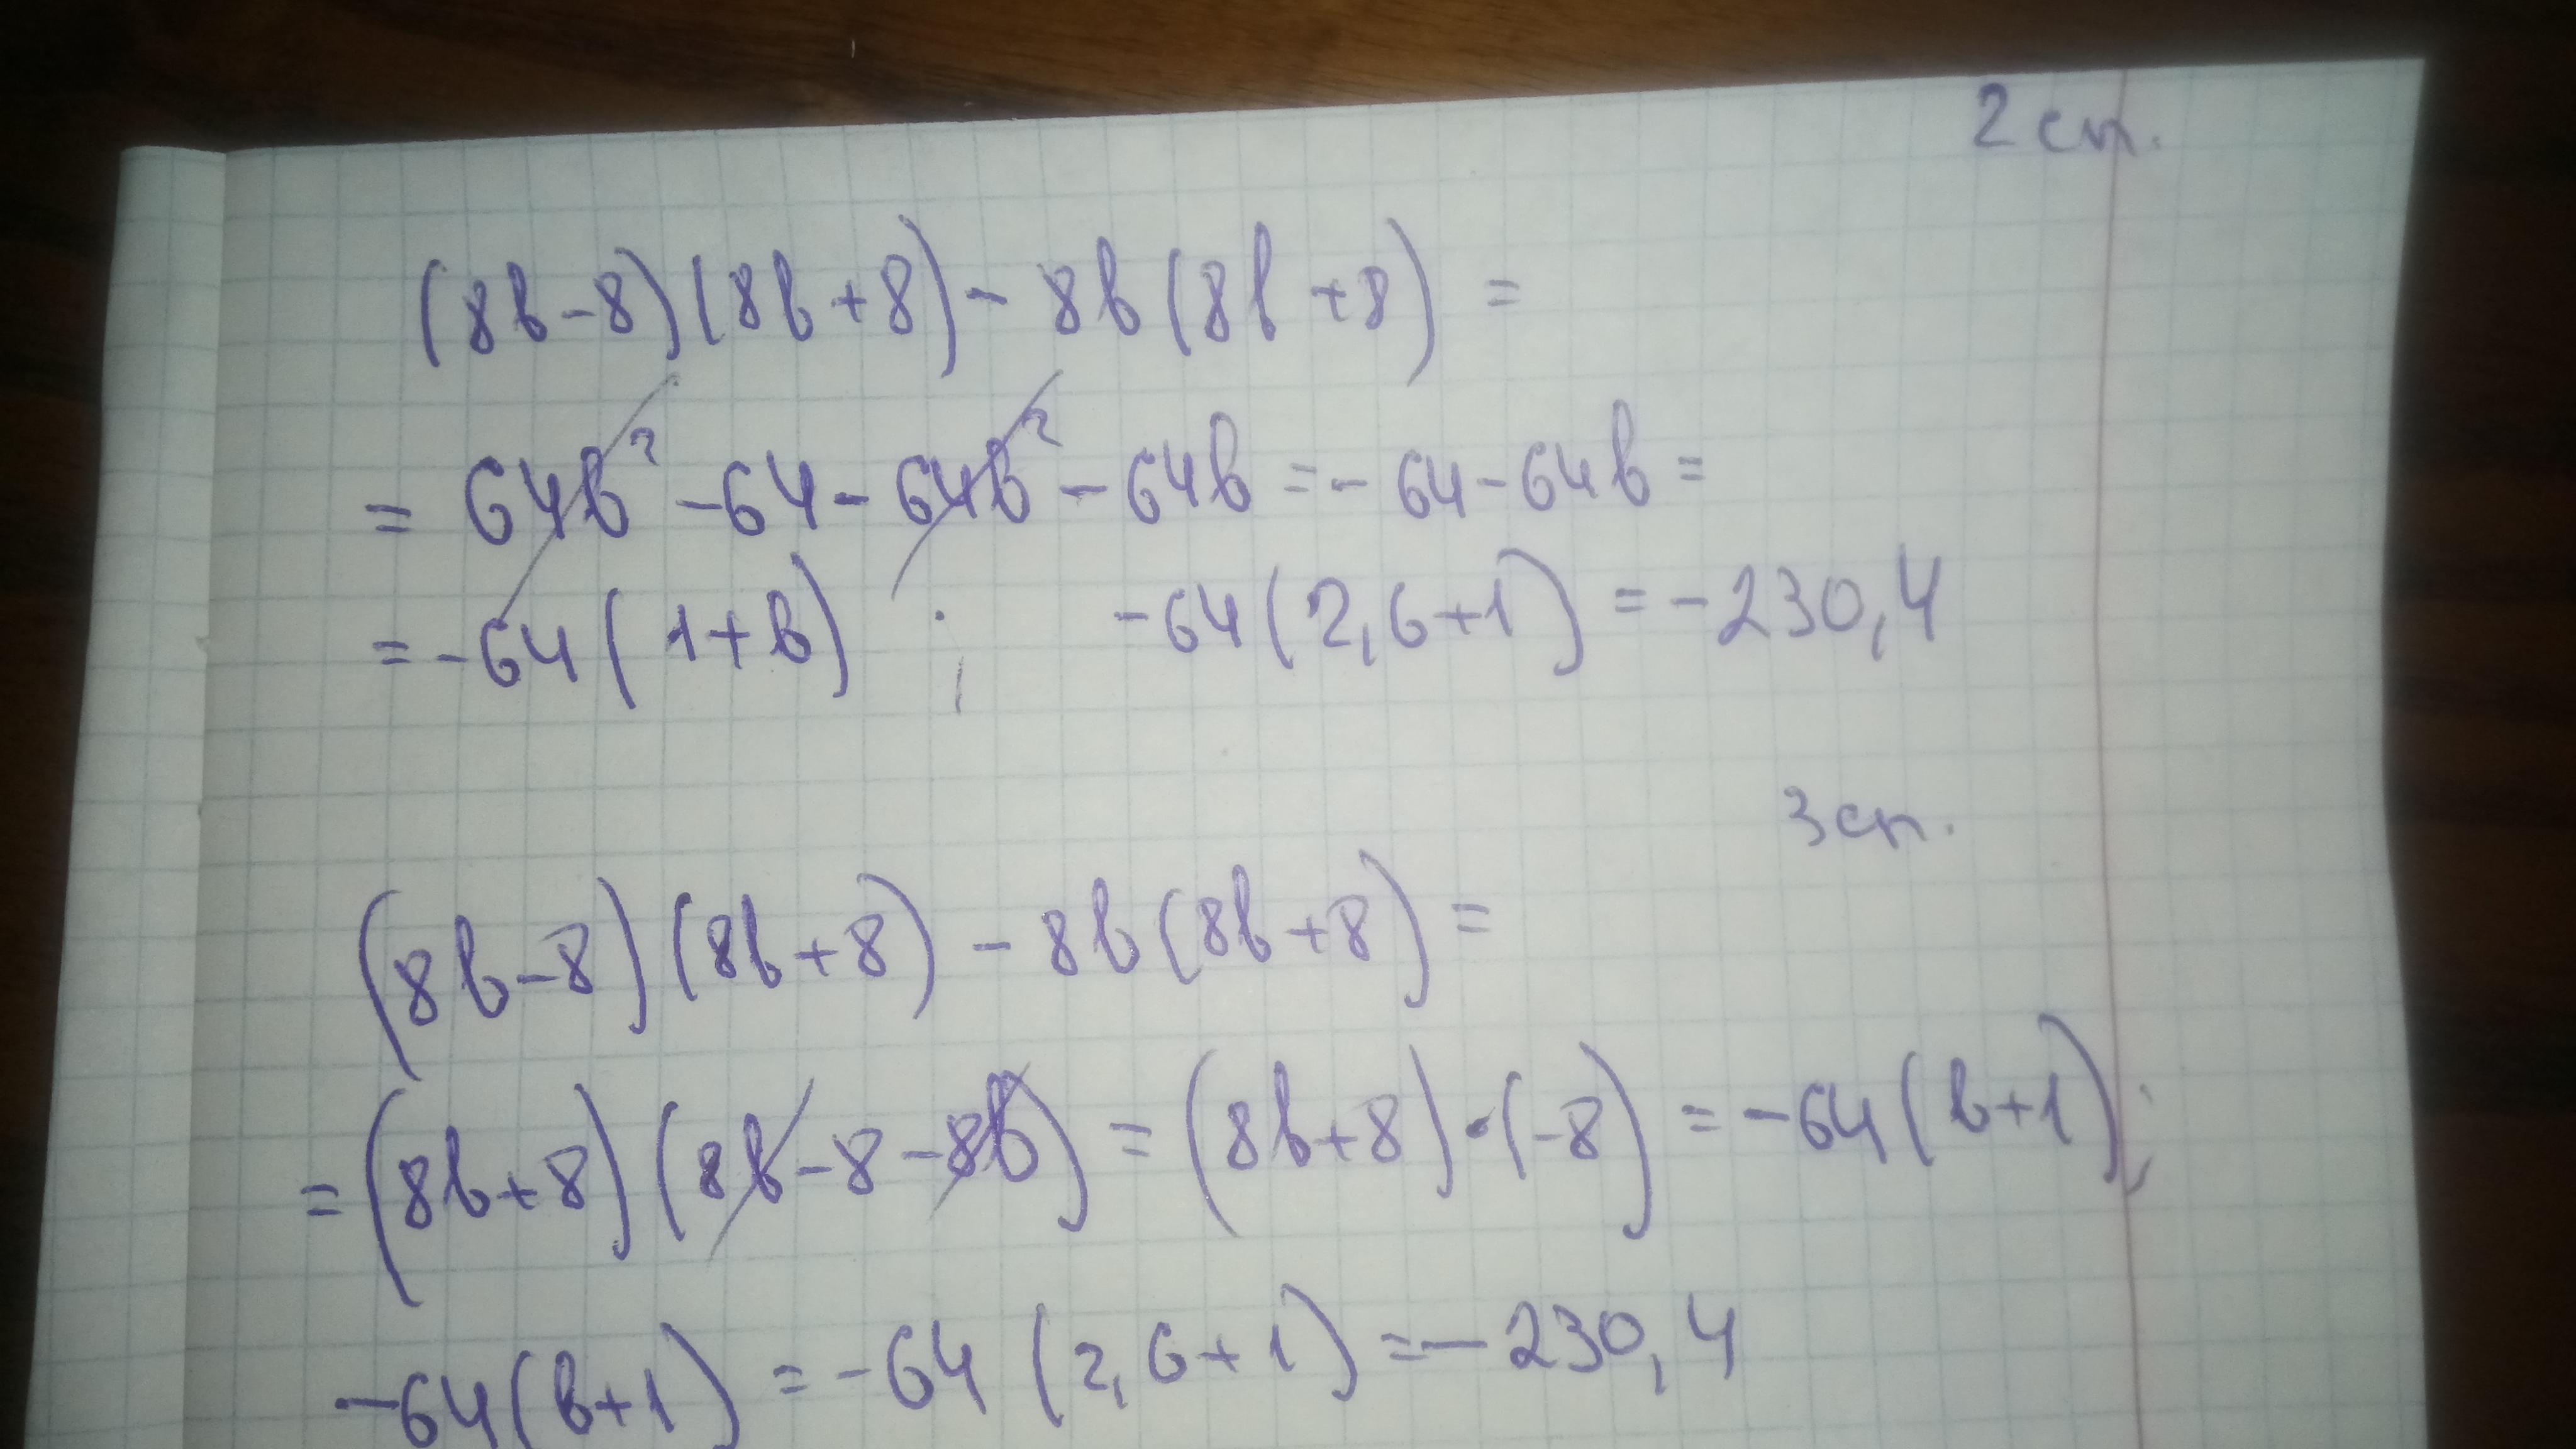 2 сп.
(8b-8)(8b+8)-8b(8b+8)=
=64b²-64-64b²-64b=-64-64b=
=-64(1+b); -64(2,6+1)=-230,4
3 сп.
(8b-8)(8b+8)-8b(8b+8)=
=(8b+8)(8b-8-8b)=(8b+8)·(-8)=-64(b+1);
-64(b+1)=-64(2,6+1)=-230,4